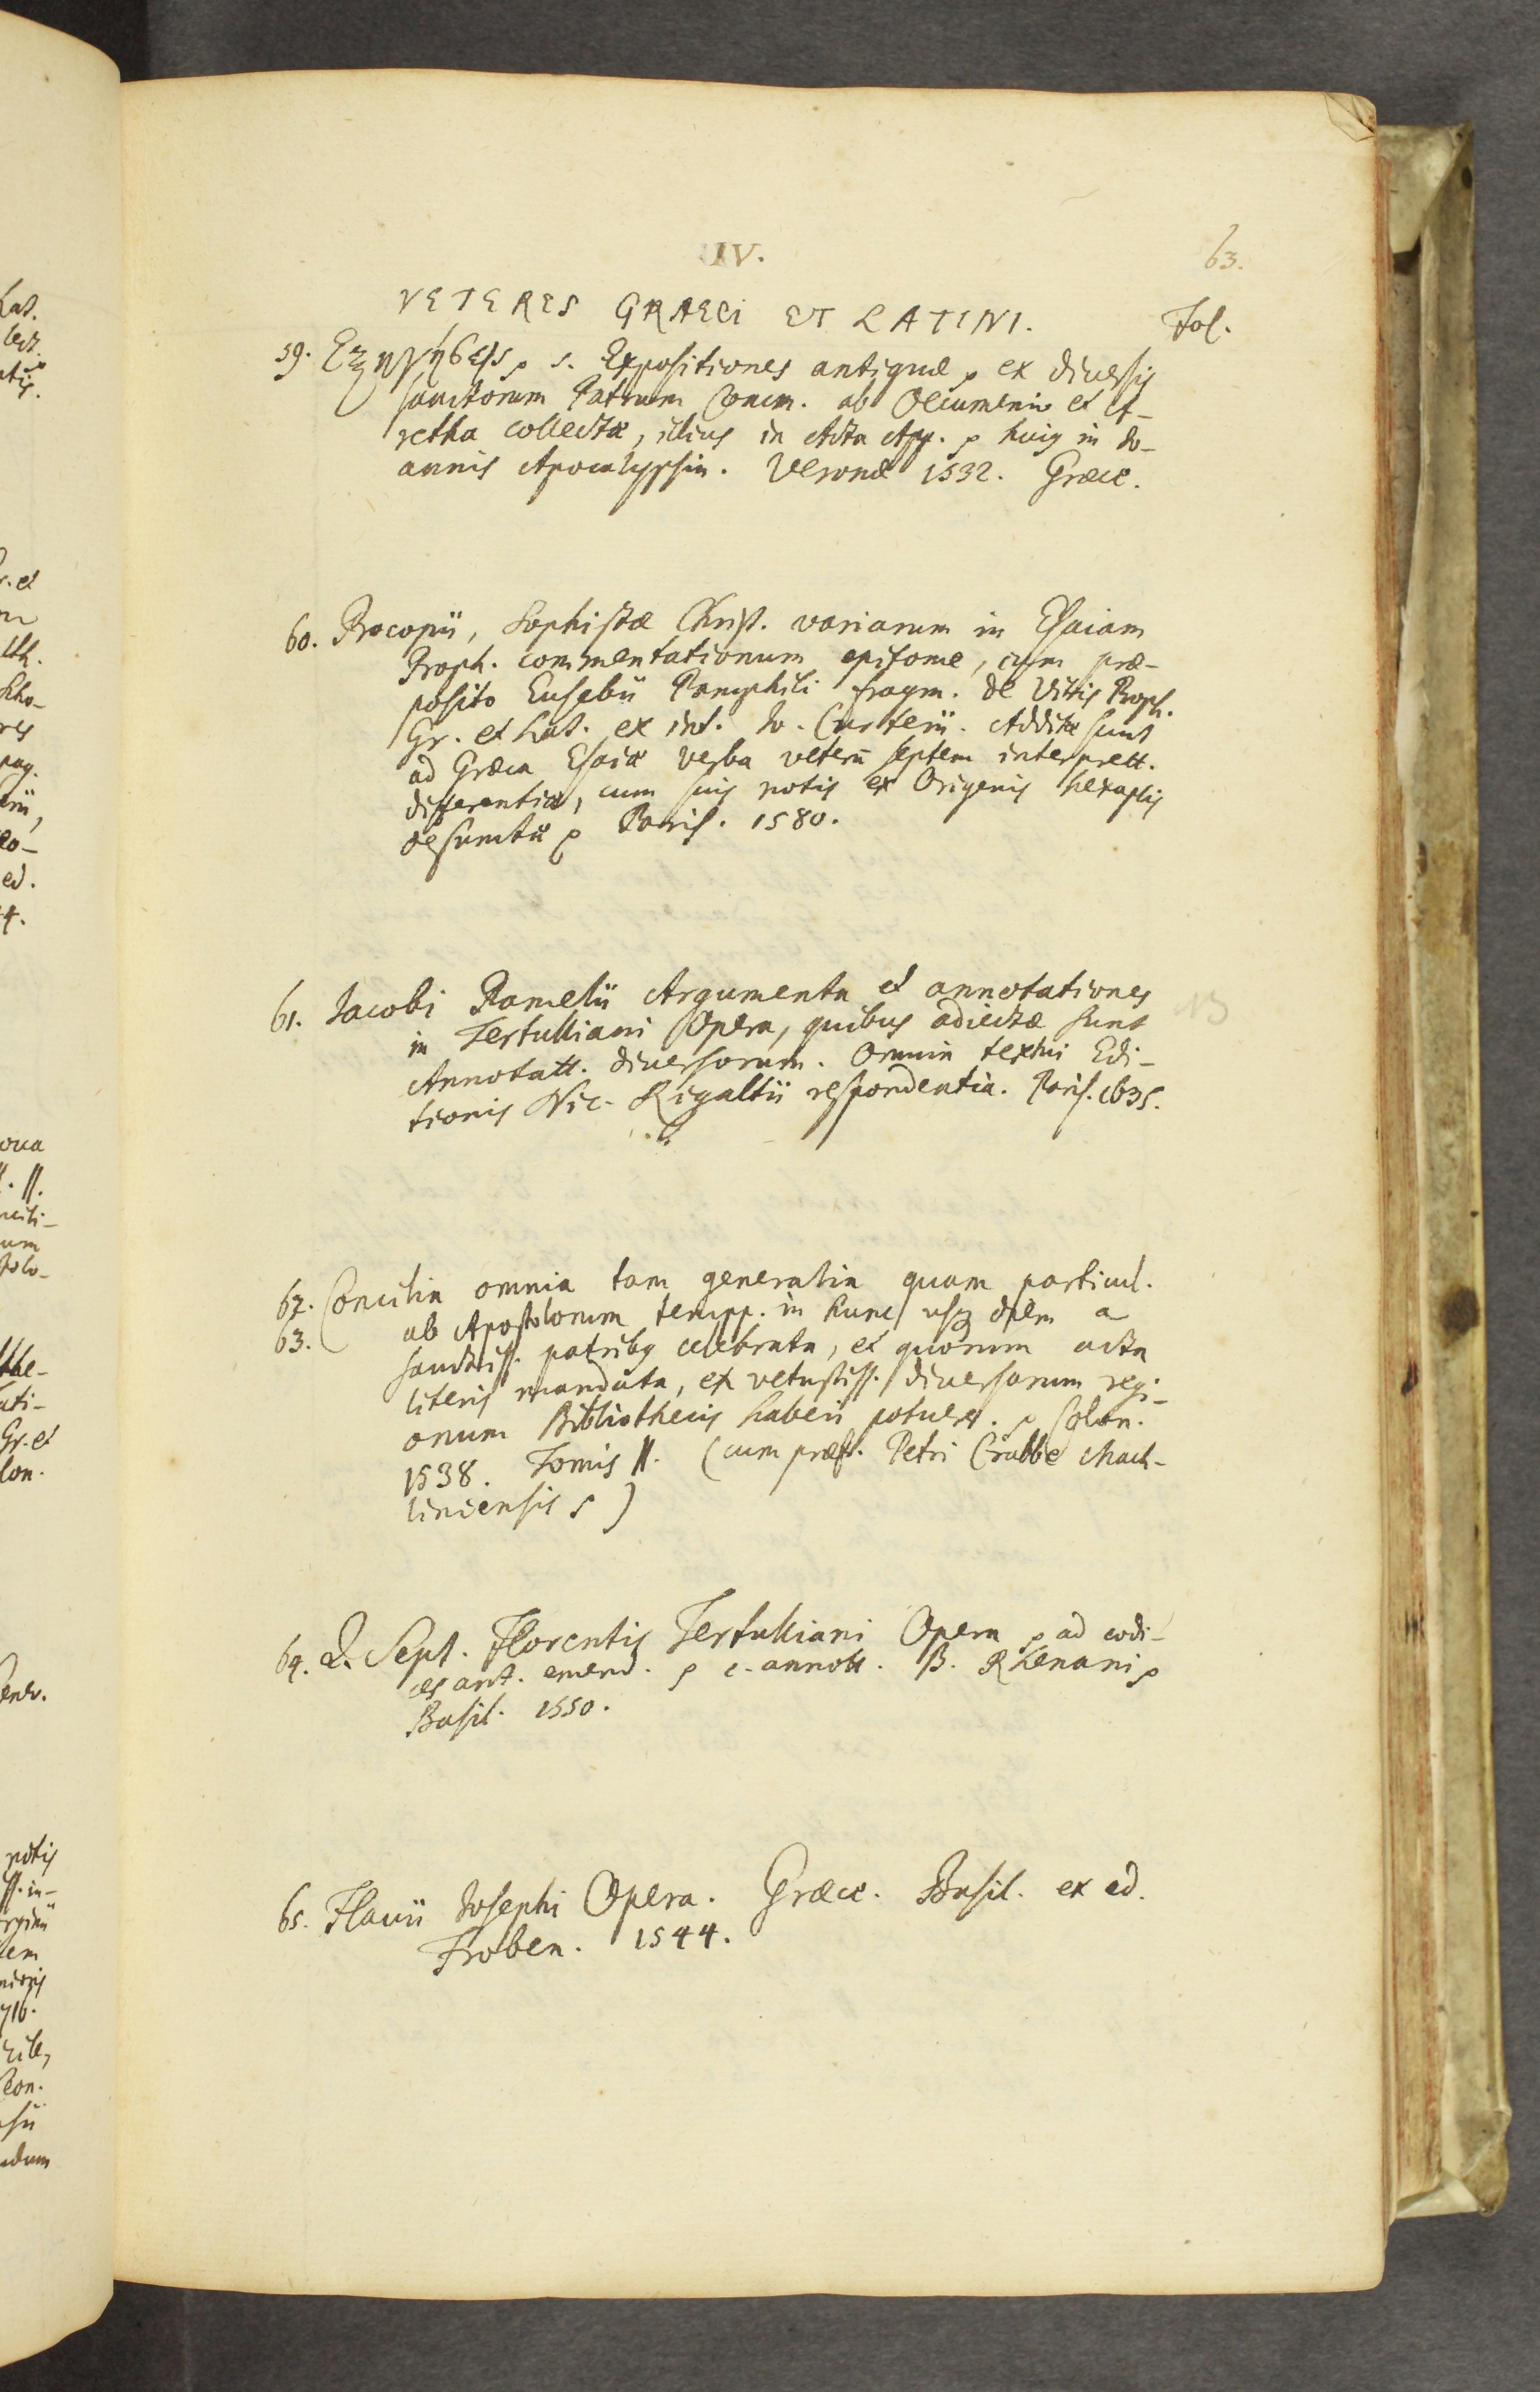 IV.
63.
VETERES GRAECI ET LATINI.
Fol.
59. Εξηγήσεις p s. Expositiones antiquæ p ex diversis
sanctorum Patrum Comm. ab Oecumenio et A-
retha collectæ, illius in Acta App. p huius in Jo-
annis Apocalypsin. Veronæ 1532. Græce.
60. Procopii, Sophistæ Christ. variarum in Esaiam
Proph. commentationum epitome, cum præ-
posito Eusebii Pamphili fragm. de Vitis Proph.
Gr. et Lat. ex int. Jo. Curterii. Additæ sunt
ad Græca Esaiæ verba veterū septem interprett.
differentiæ, cum suis notis ex Origenis hexaplis
desumtæ p Paris. 1580.
61. Jacobi Pamelii Argumenta et annotationes
in Tertulliani Opera, quibus adiectæ sunt
Annotatt. diversorum. Omnia textui Edi-
tionis Nic. Rigaltii respondentia. Paris. 1635.
62. Concilia omnia tam generalia quam particul.
63. ab Apostolorum tempp. in hunc usq diem a
sanctiss. patribus celebrata, et quorum acta
literis mandata, ex vetustiss. diversorum regi-
onum Bibliothecis haberi potuere. p Colon.
1538. Tomis II. (cum præf. Petri Crabbe Mach-
liniensis p)
64. Q. Sept. Florentis Tertulliani Opera p ad codi-
ces ant. emend. p c. annott. B. Rhenani p
Basil. 1550.
65. Flavii Josephi Opera. Græce. Basil. ex ed.
Froben. 1544.